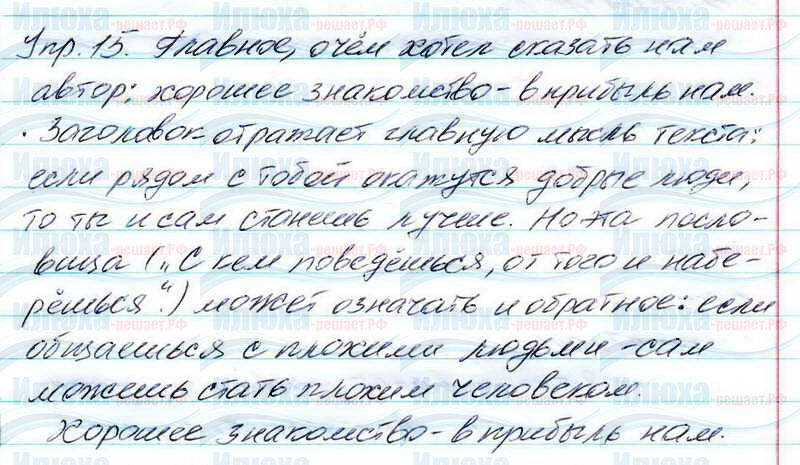 Упр. 15. Главное, о чём хотел сказать нам
автор: хорошее знакомство - в прибыль нам.
· Заголовок отражает главную мысль текста:
если рядом с тобой окажутся добрые люди,
то ты и сам станешь лучше. Но эта посло-
вица („С кем поведёшься, от того и набе-
рёшься“.) может означать и обратное: если
общаешься с плохими людьми - сам
можешь стать плохим человеком.
Хорошее знакомство - в прибыль нам.